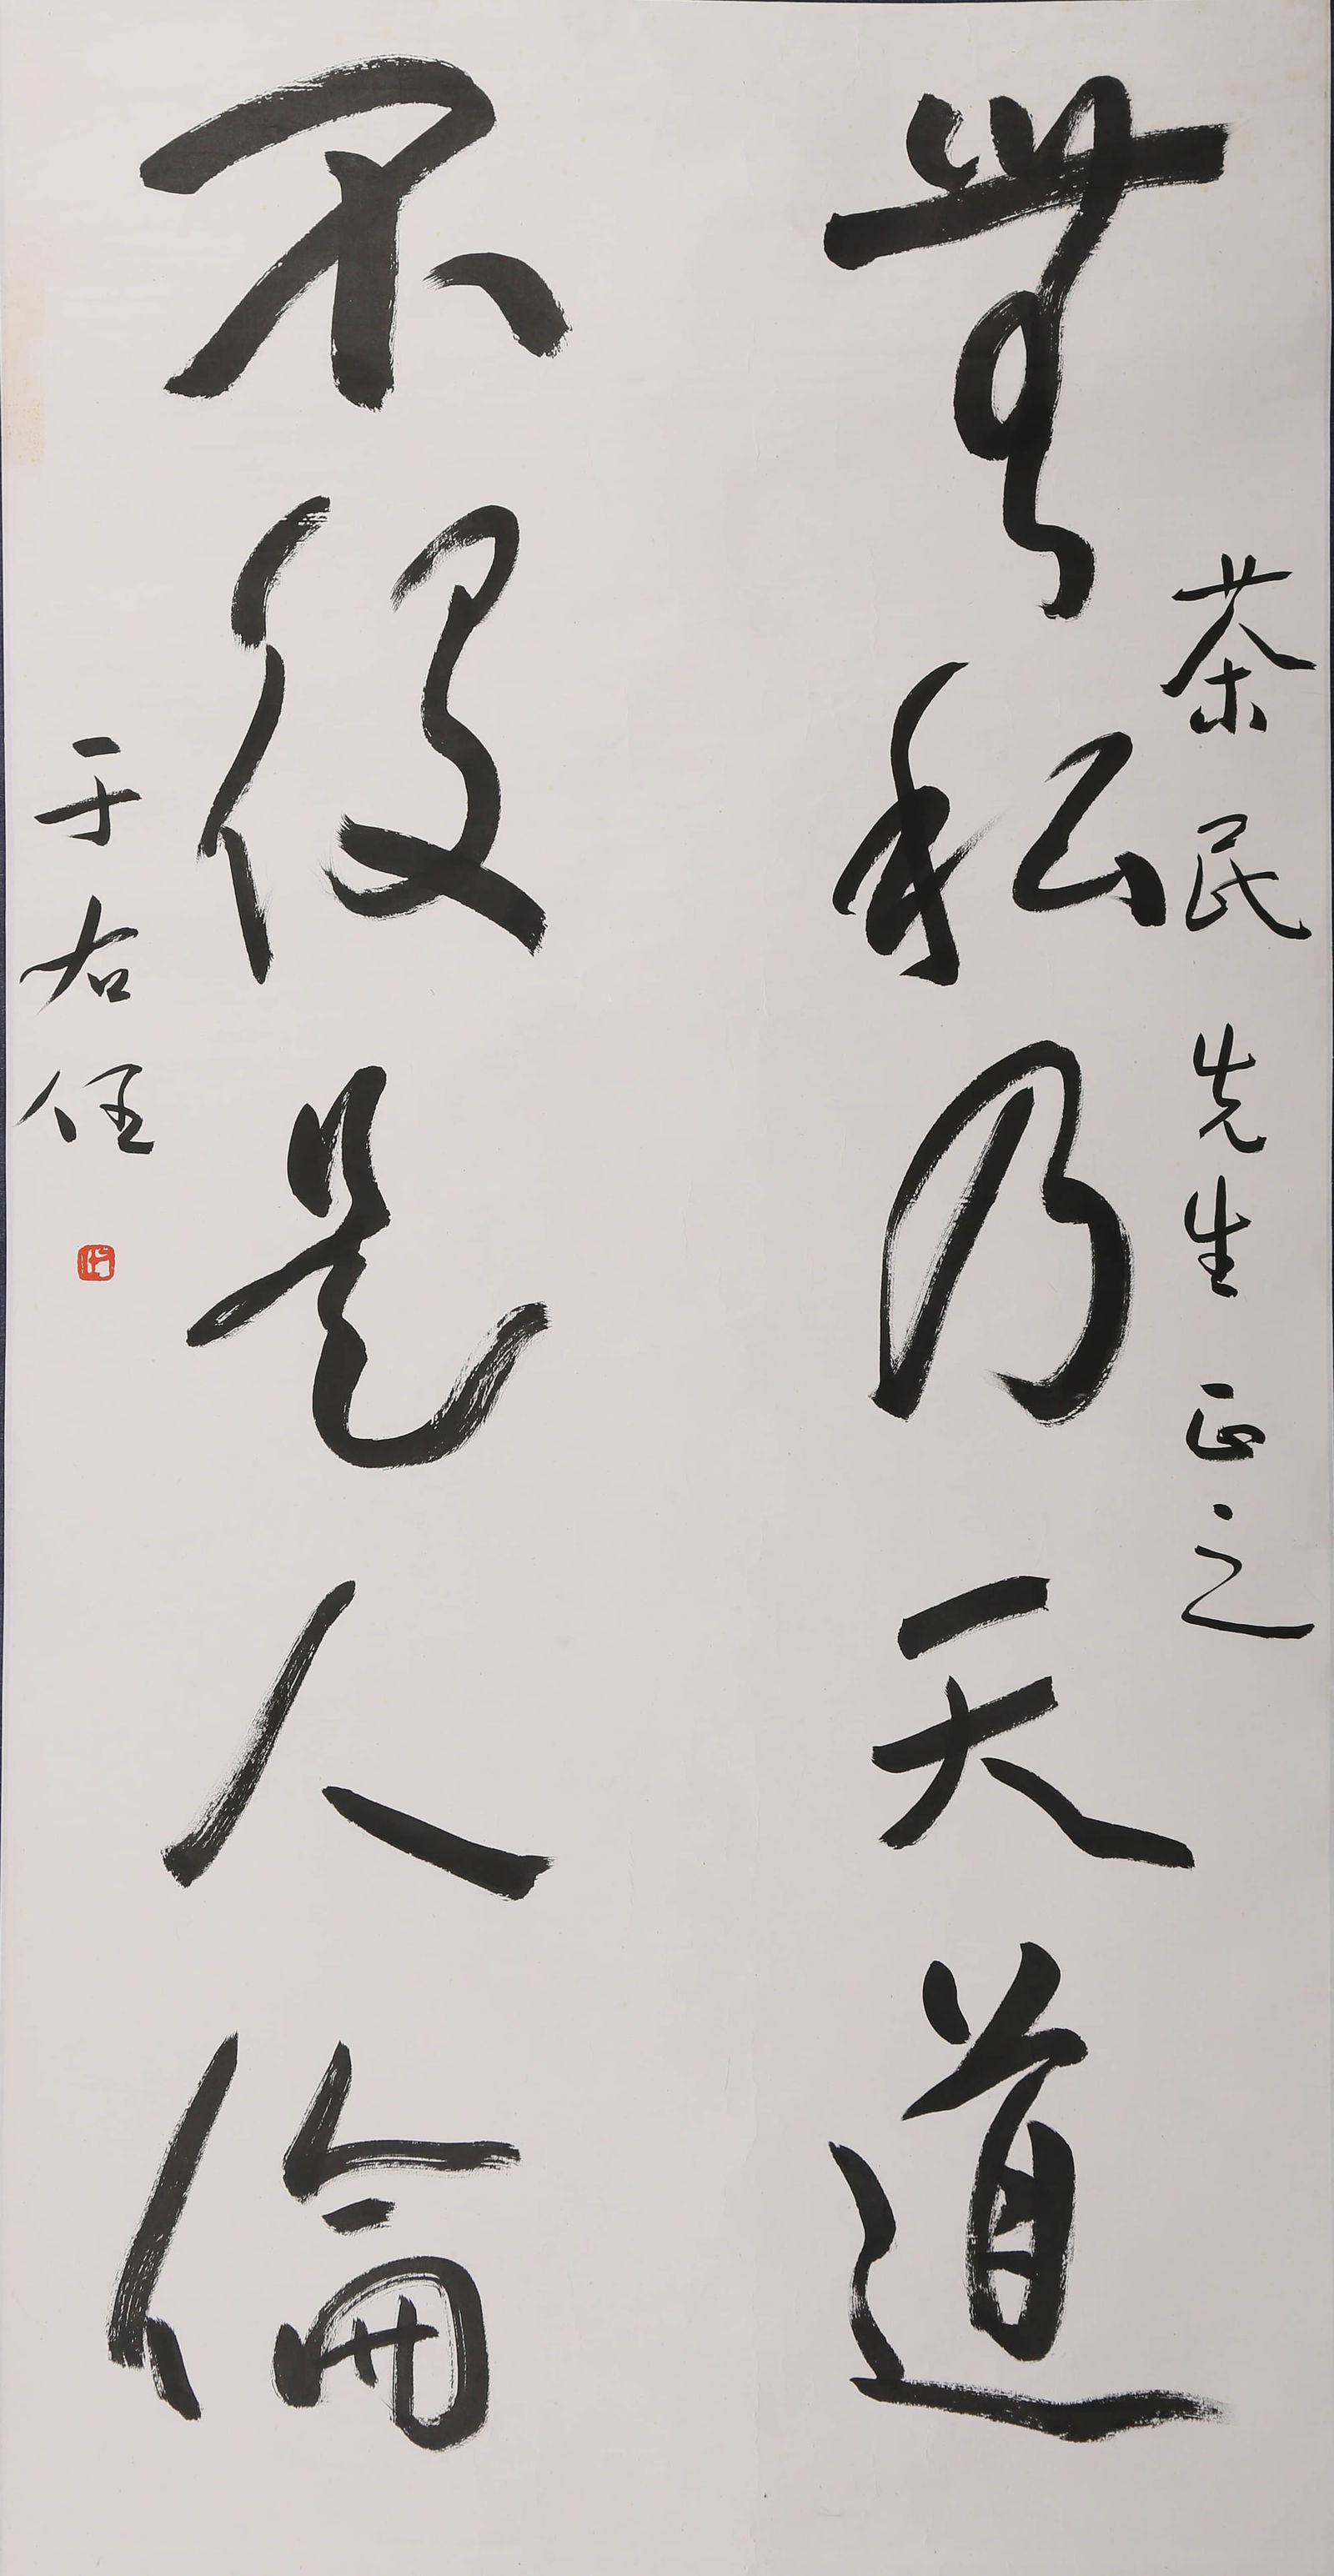 荼民先生正之
無私乃天道
不役是人倫
于右任